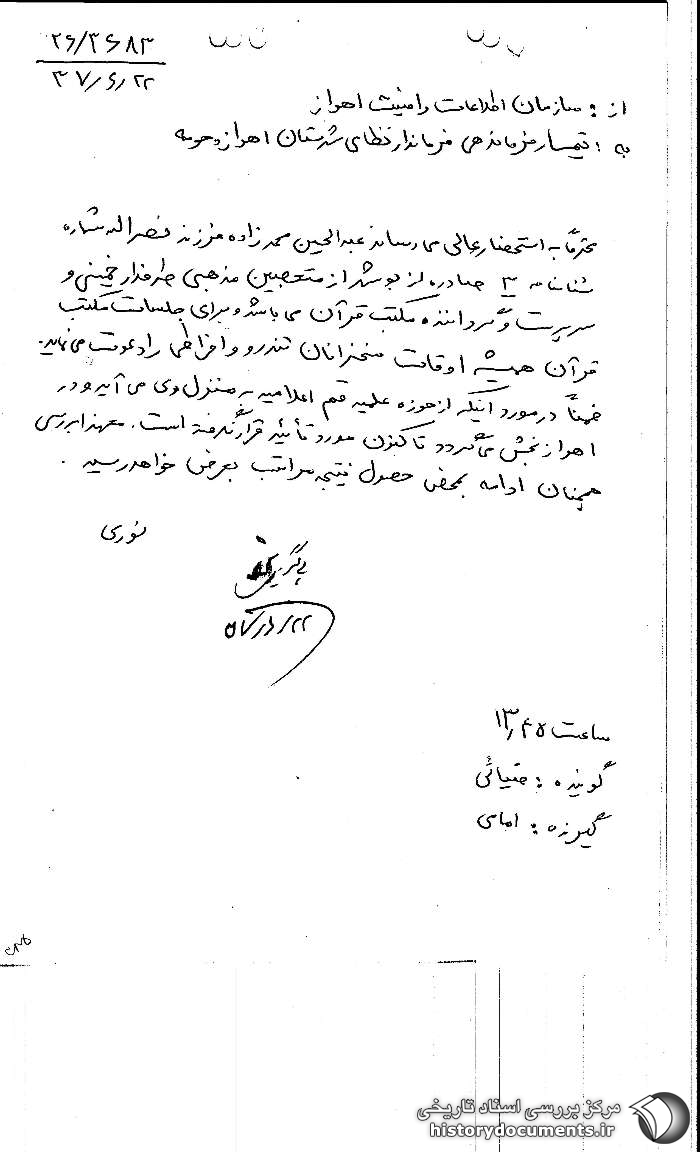 ۲۶/۳۶۸۳
۳۷/۶/۲۲
از : سازمان اطلاعات و امنیت اهواز
به : تیمسار فرماندهی فرماندار نظامی شهرستان اهواز و حومه
محترماً به استحضار عالی می رساند عبدالحسین محمدزاده فرزند نصراله شماره
شناسنامه ۳ صادره از بوشهر از متعصبین مذهبی طرفدار خمینی و
سرپرست و گرداننده مکتب قرآن می باشد و برای جلسات مکتب
قرآن همیشه اوقات سخنرانان تندرو و افراطی را دعوت می نماید.
ضمناً در مورد اینکه از حوزه علمیه قم اعلامیه به منزل وی می آید و در
اهواز پخش می گردد تا کنون مورد تأیید قرار نگرفته است. معهذا بررسی
همچنان ادامه بمحض حصول نتیجه مراتب بعرض خواهد رسید.
نوری
ساعت ۱۳/۴۵
گوینده : ضیائی
گیرنده : امامی
مرکز بررسی اسناد تاریخی
historydocuments.ir